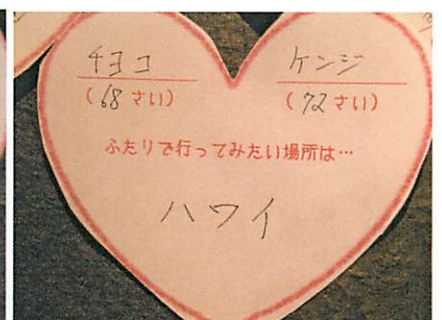 チヨコ ケンジ
(68さい) (72さい)
ふたりで行ってみたい場所は…
ハワイ